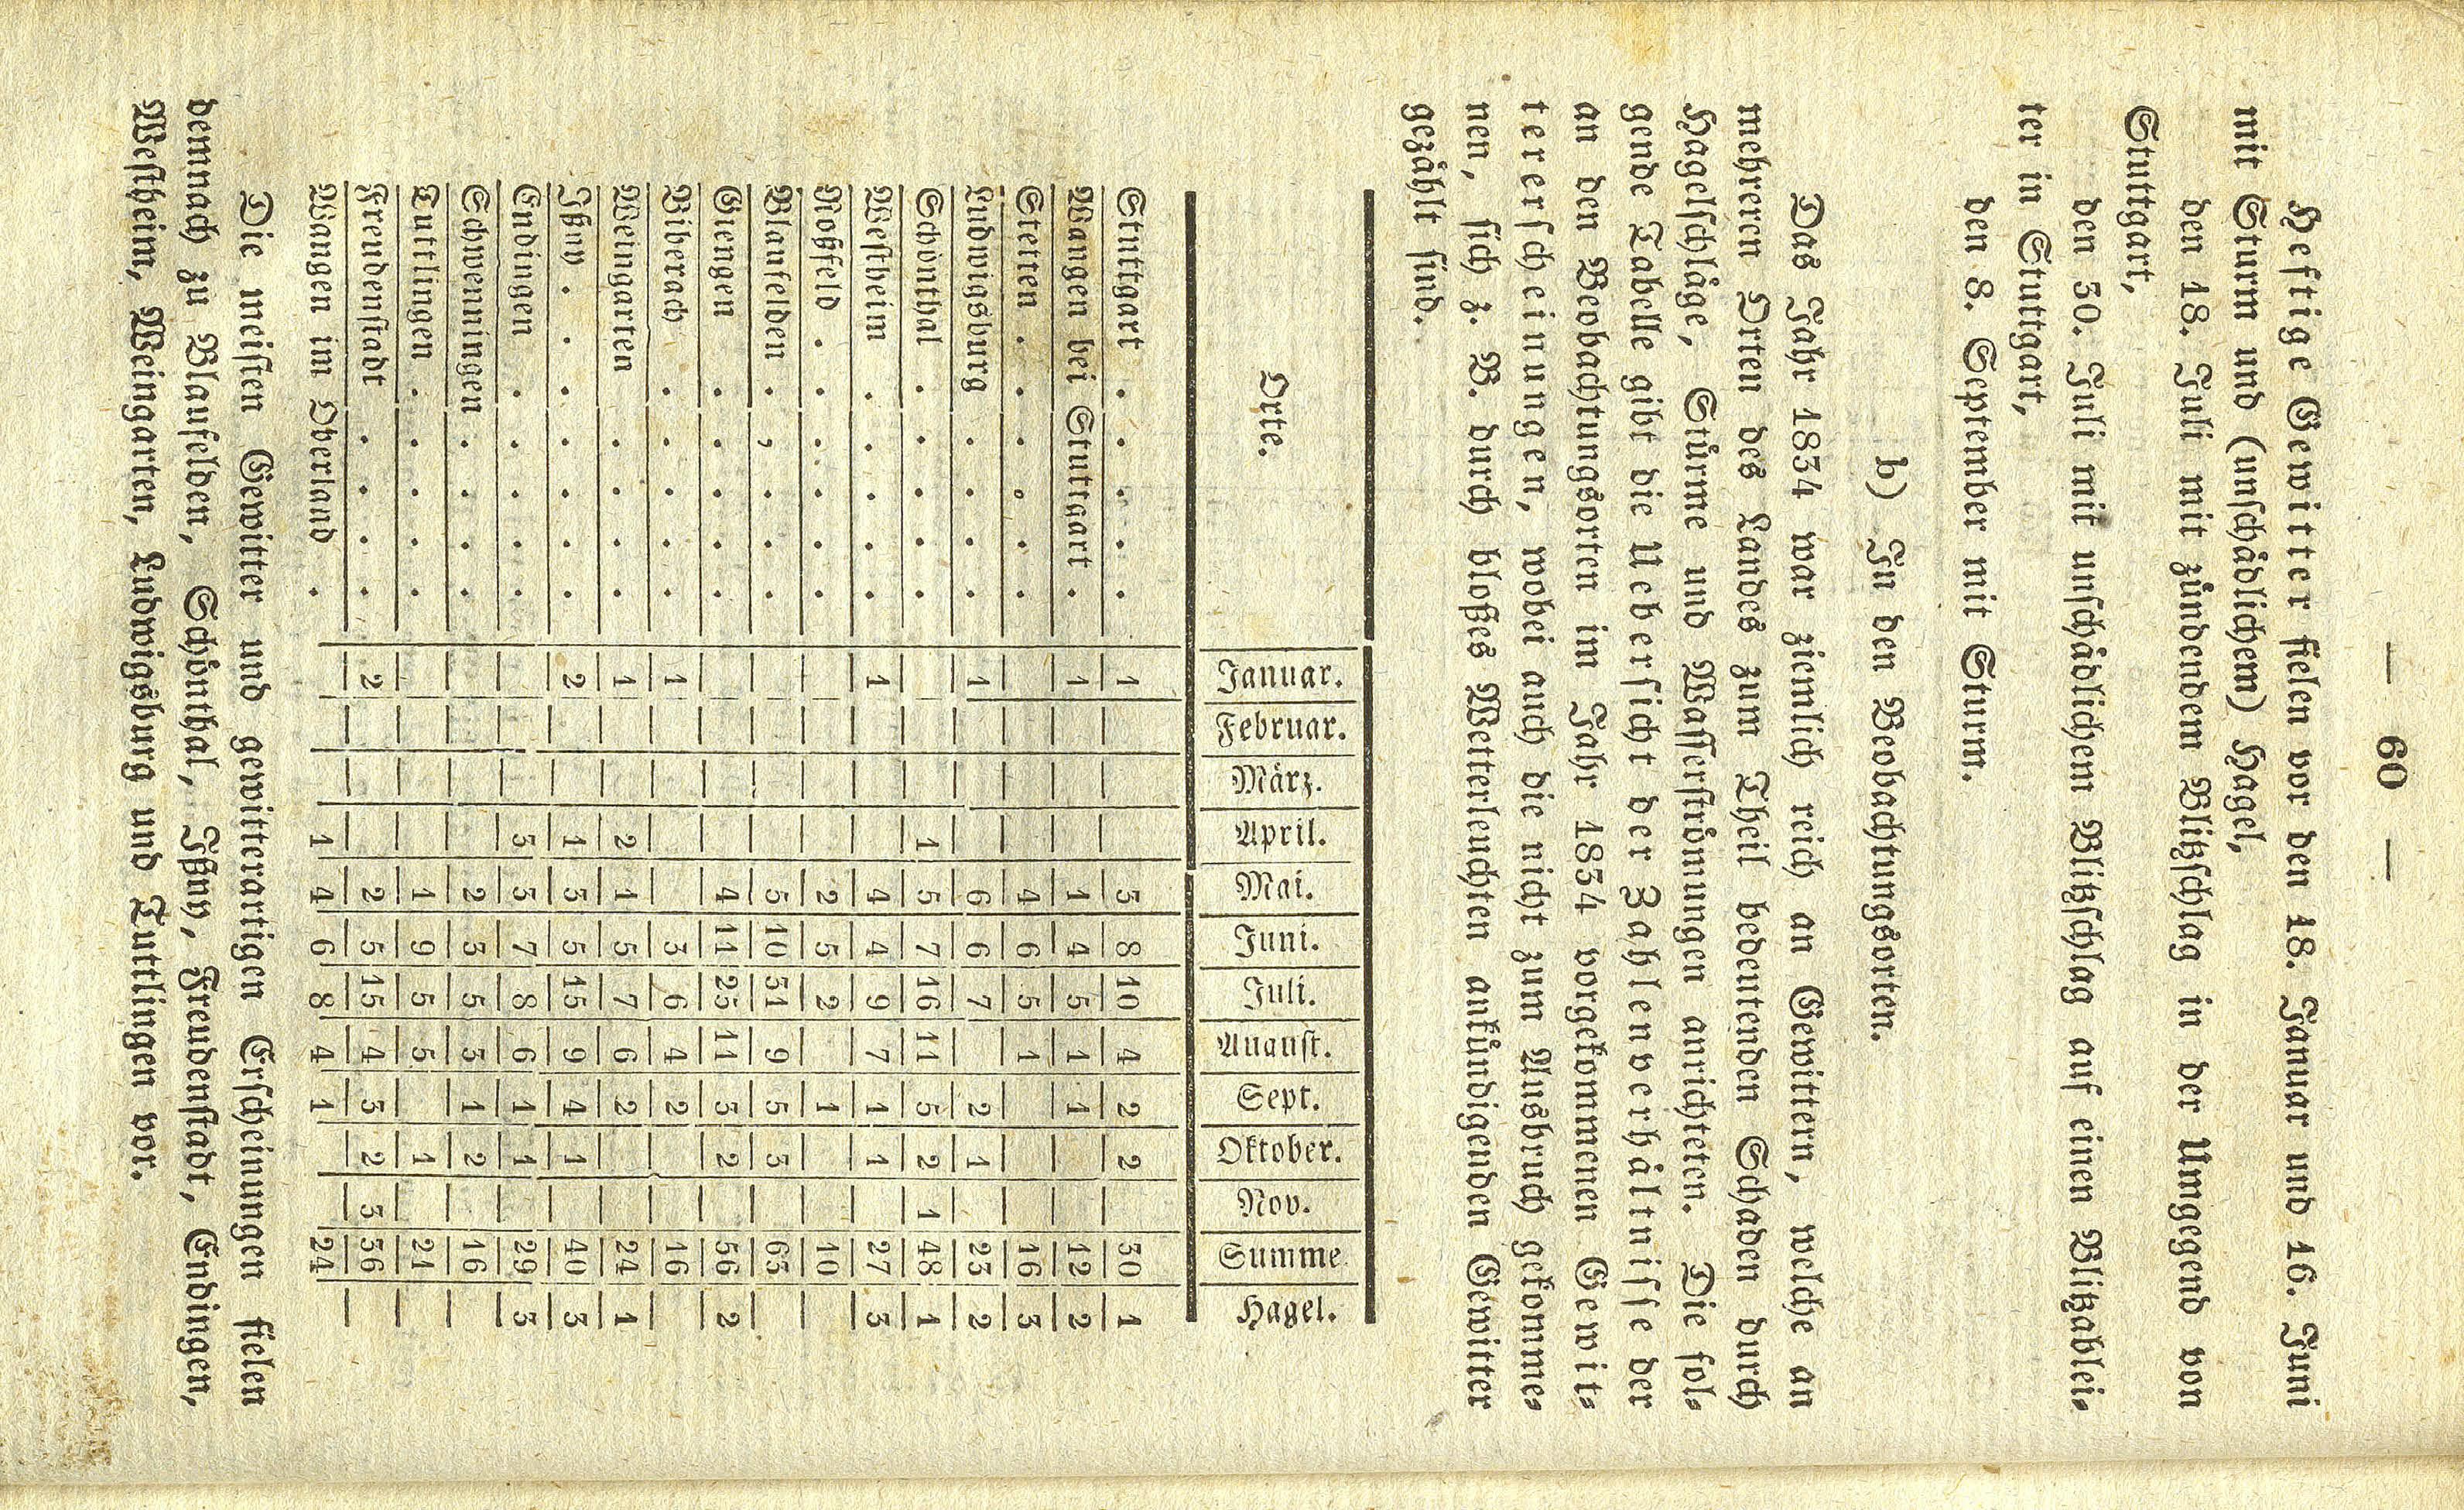 — 60 —
Heftige Gewitter fielen vor den 18. Januar und 16. Juni
mit Sturm und (unschädlichem) Hagel,
den 18. Juli mit zündendem Blitzschlag in der Umgegend von
Stuttgart,
den 30. Juli mit unschädlichem Blitzschlag auf einen Blitzablei-
ter in Stuttgart,
den 8. September mit Sturm.
b) In den Beobachtungsorten.
Das Jahr 1834 war ziemlich reich an Gewittern, welche an
mehreren Orten des Landes zum Theil bedeutenden Schaden durch
Hagelschläge, Stürme und Wasserströmungen anrichteten. Die fol-
gende Tabelle gibt die Uebersicht der Zahlenverhältnisse der
an den Beobachtungsorten im Jahr 1834 vorgekommenen Gewit-
tererscheinungen, wobei auch die nicht zum Ausbruch gekomme-
nen, sich z. B. durch bloßes Wetterleuchten ankündigenden Gewitter
gezählt sind.
Orte. Januar. Februar. März. April. Mai. Juni. Juli. August. Sept. Oktober. Nov. Summe Hagel.
Stuttgart . . . . . 1 3 8 10 4 2 2 30 1
Wangen bei Stuttgart . 1 1 4 5 1 1 12 2
Stetten . . . . . . 4 6 5 1 16 3
Ludwigsburg . . . . 1 6 6 7 2 1 23 2
Schönthal . . . . . 1 5 7 16 11 5 2 1 48 1
Westheim . . . . . 1 4 4 9 7 1 1 27 3
Roßfeld . . . . . . 2 5 2 1 10
Blaufelden . , . . . 5 10 31 9 5 3 63
Giengen . . . . . 4 11 25 11 3 2 56 2
Biberach . . . . . 1 3 6 4 2 16
Weingarten . . . . 1 2 1 5 7 6 2 24 1
Isny . . . . . . . 2 1 3 5 15 9 4 1 40 3
Endingen . . . . . 3 3 7 8 6 1 1 29 3
Schwenningen . . . . 2 3 5 3 1 2 16
Tuttlingen . . . . . 1 9 5 5 1 21
Freudenstadt . . . . 2 2 5 15 4 3 2 3 36
Wangen im Oberland . 1 4 6 8 4 1 24
Die meisten Gewitter und gewitterartigen Erscheinungen fielen
demnach zu Blaufelden, Schönthal, Isny, Freudenstadt, Endingen,
Westheim, Weingarten, Ludwigsburg und Tuttlingen vor.